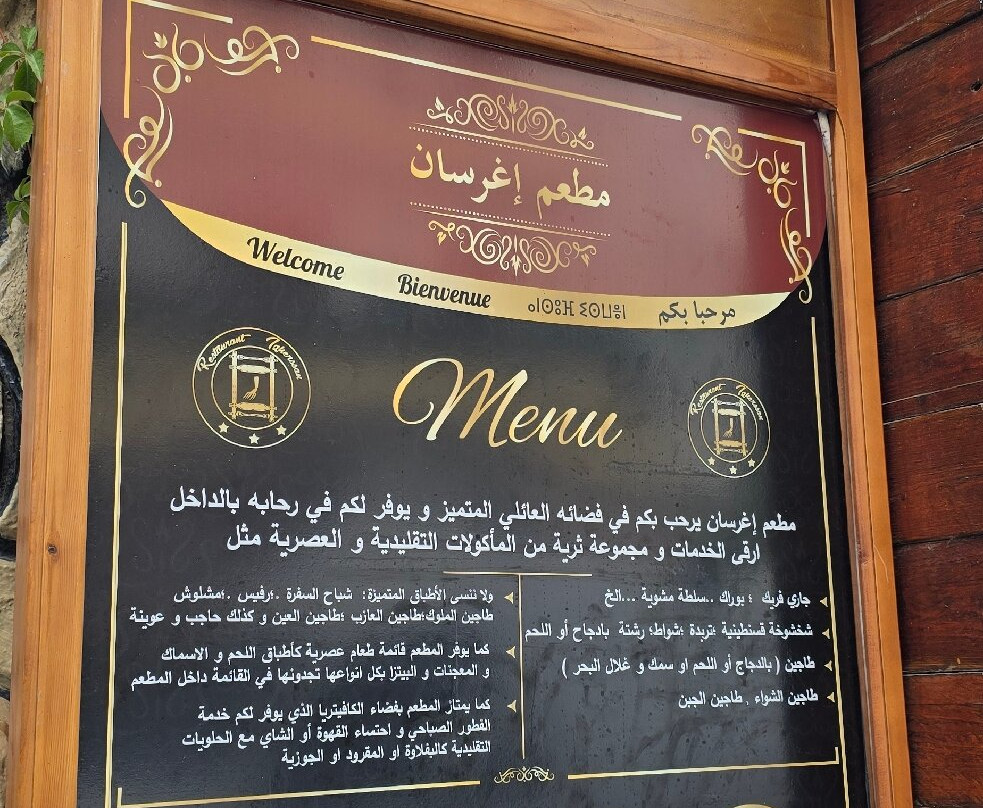 مطعم إغرسان
Welcome Bienvenue ⵍⵙⵓⴼ ⵉⵙⵡⵓⵏ مرحبا بكم
Restaurant
Menu
Restaurant
مطعم إغرسان يرحب بكم في فضائه العائلي المتميز و يوفر لكم في رحابه بالداخل
ارقى الخدمات و مجموعة ثرية من المأكولات التقليدية و العصرية مثل
جاري فريك ؛ بوراك ..سلطة مشوية ...الخ
شخشوخة قسنطينية ؛تريدة ؛شواط؛ رشتة بادجاج أو اللحم
طاجين ( بالدجاج أو اللحم او سمك و غلال البحر )
طاجين الشواء , طاجين الجبن
ولا ننسى الأطباق المتميزة: شباح السفرة ؛رفيس ؛مشلوش
طاجين الملوك؛طاجين العازب ؛طاجين العين و كذلك حاجب و عوينة
كما يوفر المطعم قائمة طعام عصرية كأطباق اللحم و الاسماك
و المعجنات و البيتزا بكل انواعها تجدونها في القائمة داخل المطعم
كما يمتاز المطعم بفضاء الكافيتريا الذي يوفر لكم خدمة
الفطور الصباحي و احتساء القهوة أو الشاي مع الحلويات
التقليدية كالبقلاوة او المقرود او الجوزية